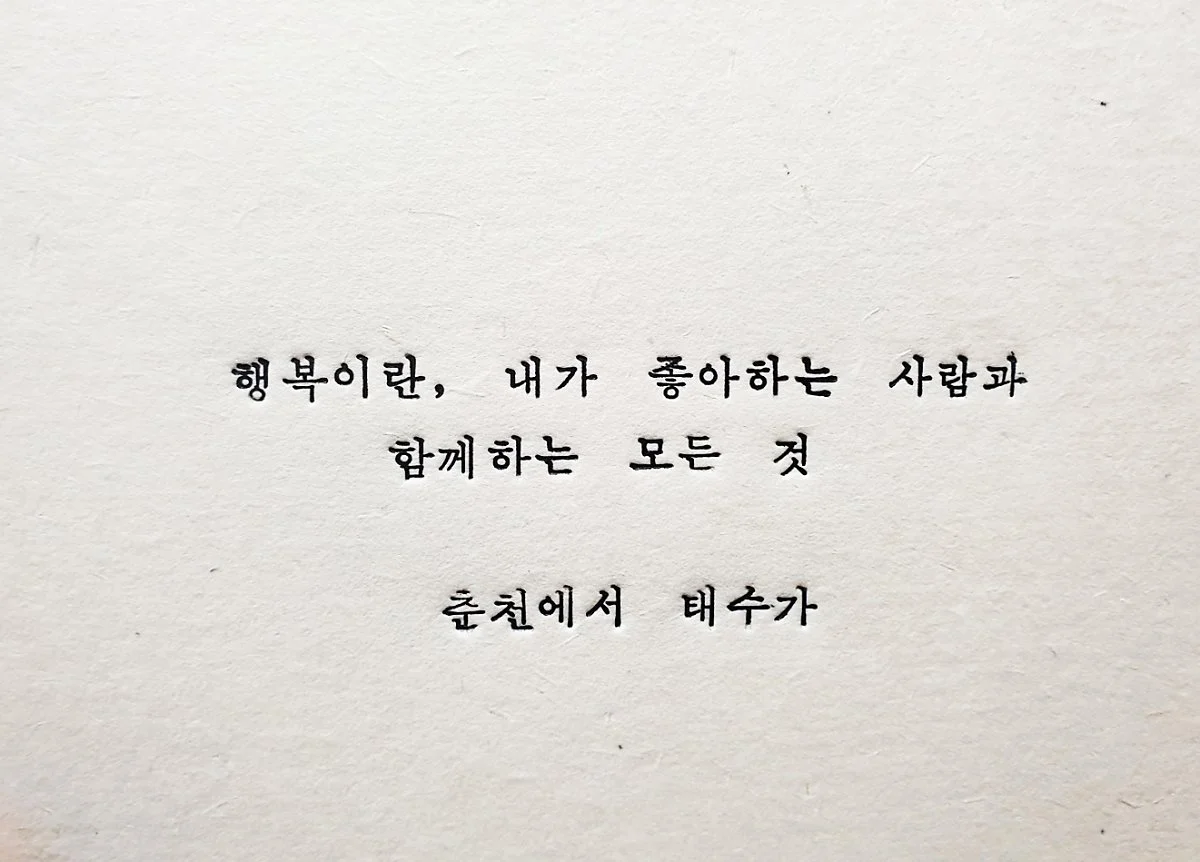 행복이란, 내가 좋아하는 사람과
함께하는 모든 것
춘천에서 태수가